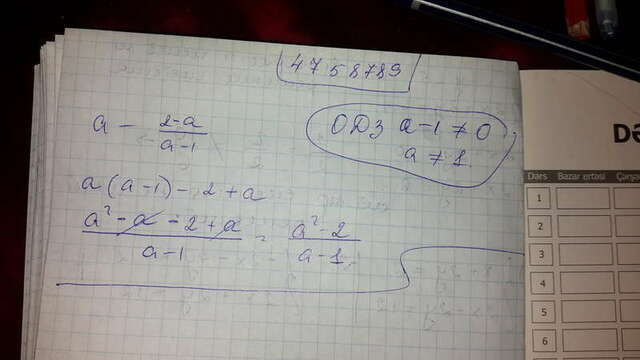 4758789
a - 2-a / a-1
ОДЗ a-1 ≠ 0
a ≠ 1
a(a-1) - 2 + a
a² - a - 2 + a / a-1 = a² - 2 / a-1
Dərs Bazar ertəsi
1
2
3
4
5
6